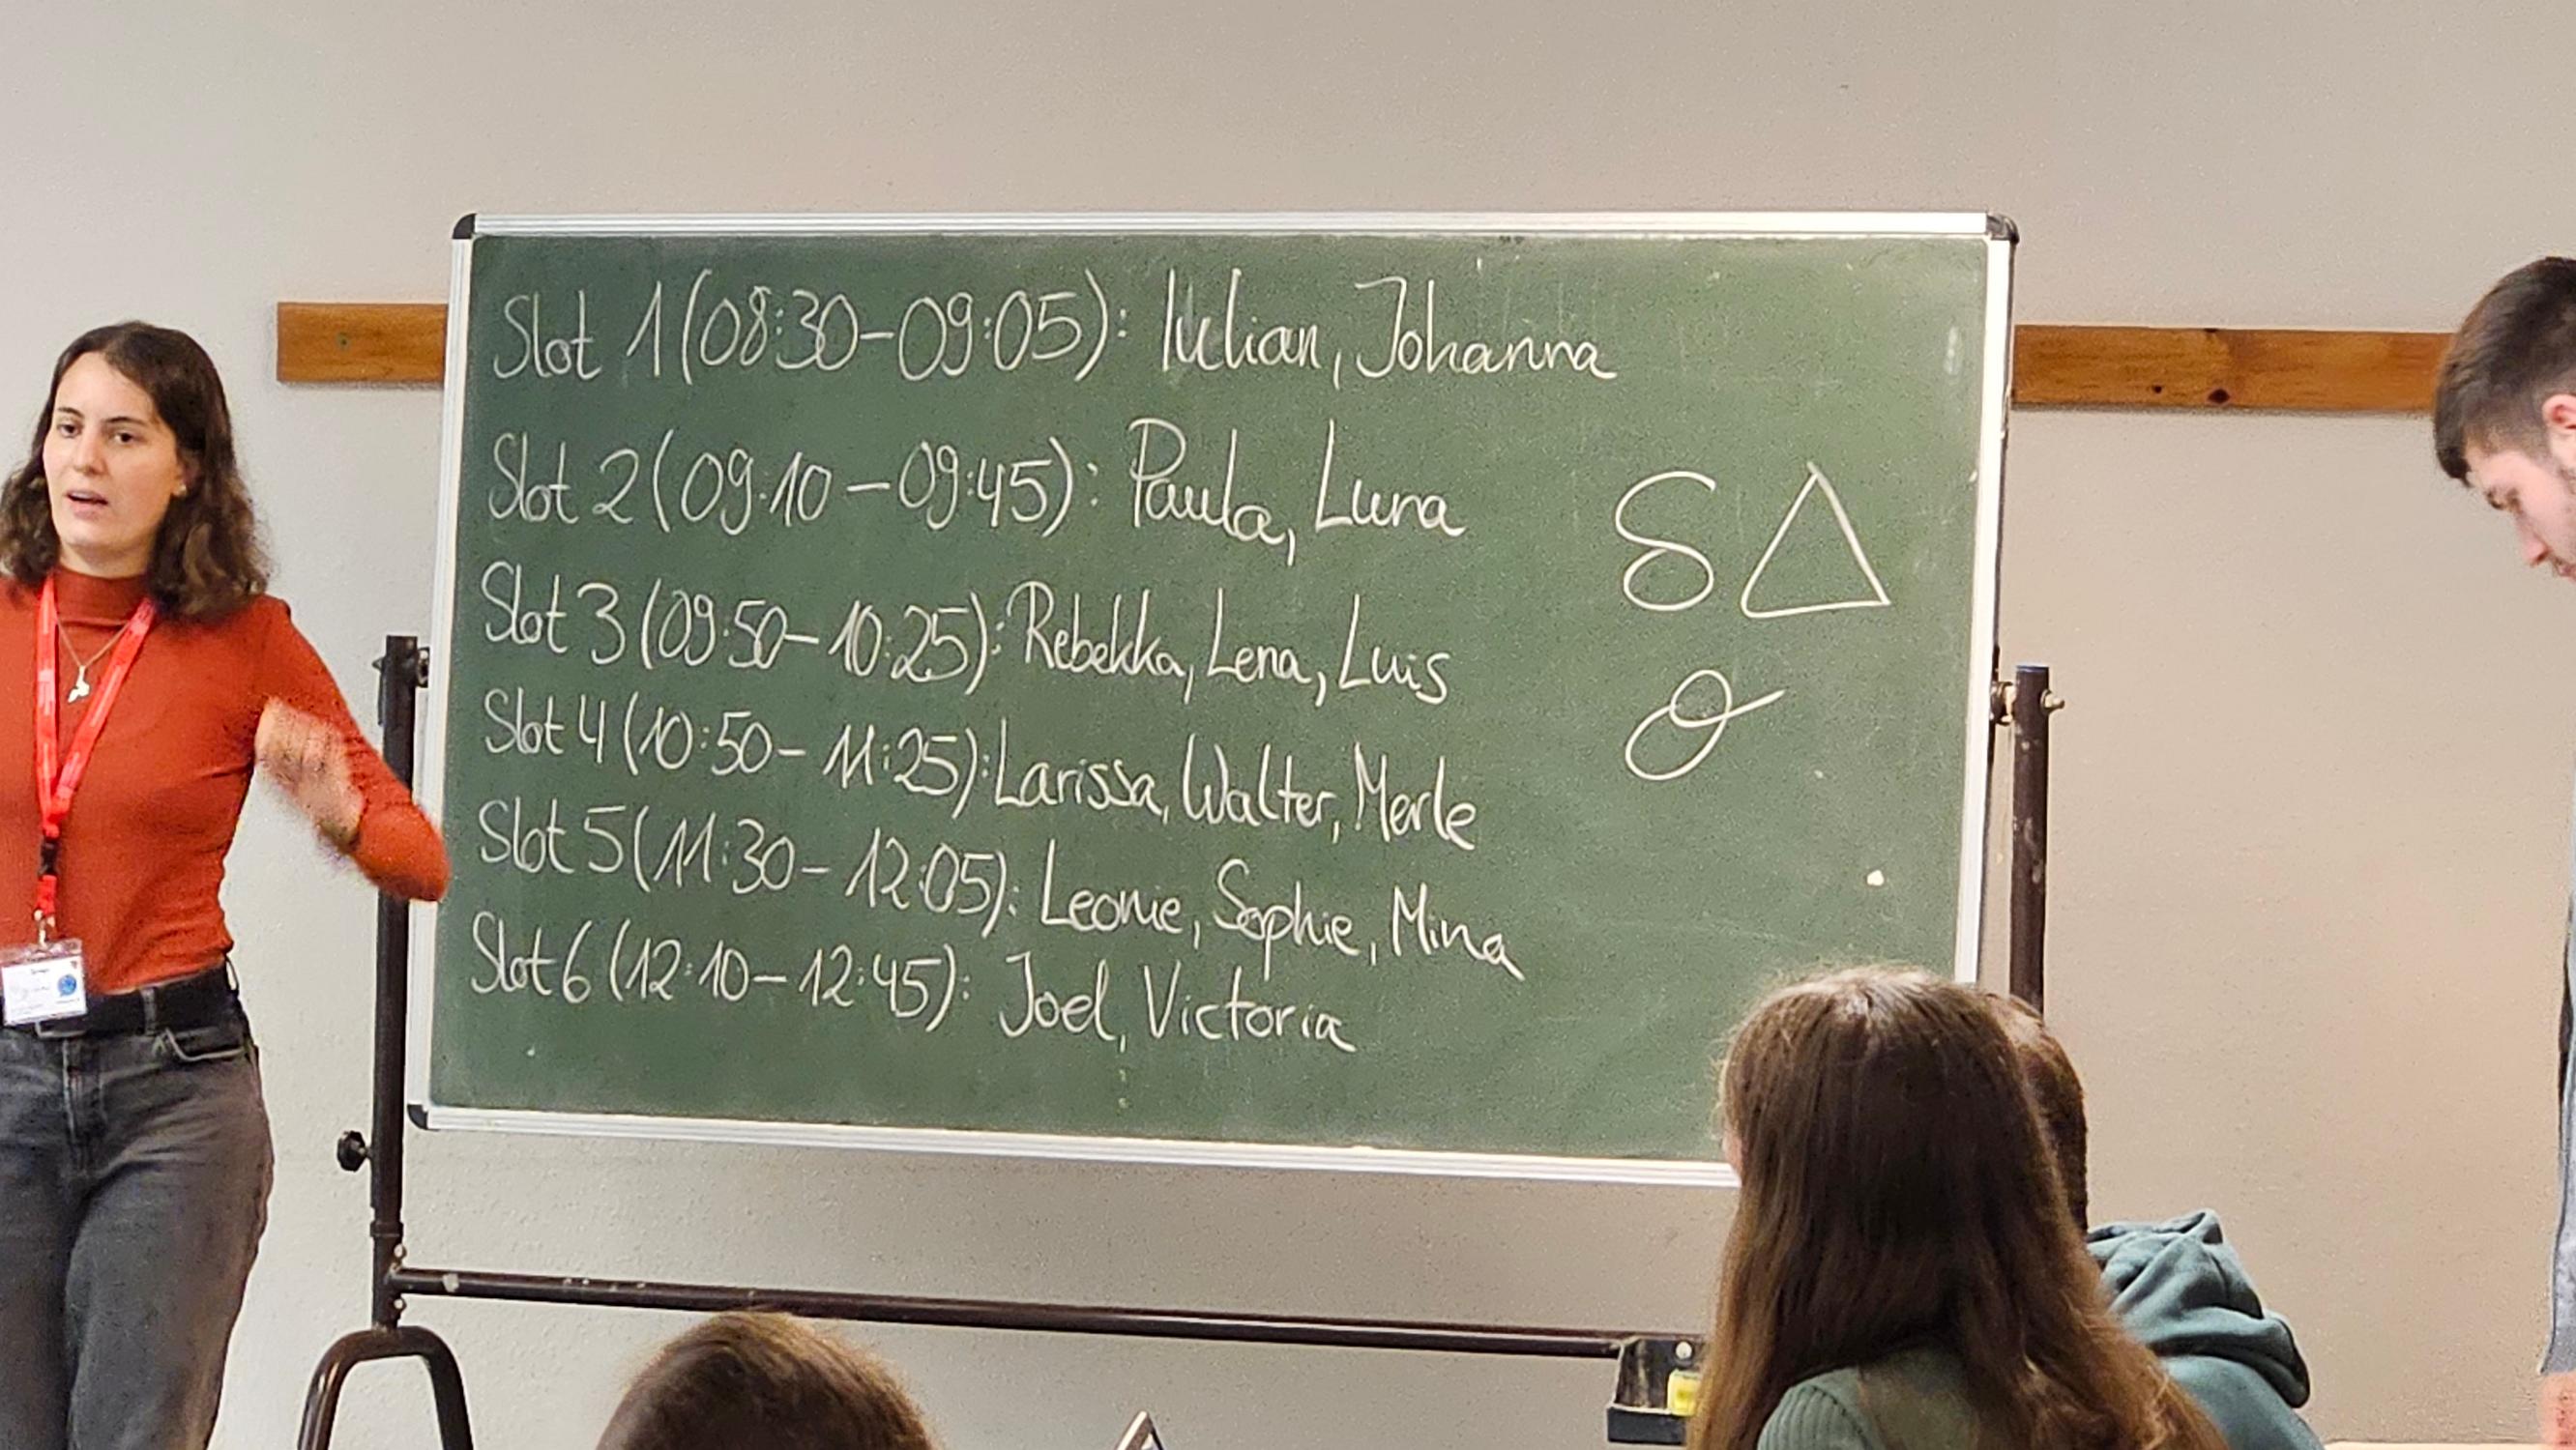 Slot 1 (08:30-09:05): Iulian, Johanna
Slot 2 (09:10-09:45): Paula, Luna
Slot 3 (09:50-10:25): Rebekka, Lena, Luis
Slot 4 (10:50-11:25): Larissa, Walter, Merle
Slot 5 (11:30-12:05): Leonie, Sophie, Mina
Slot 6 (12:10-12:45): Joel, Victoria
δ Δ